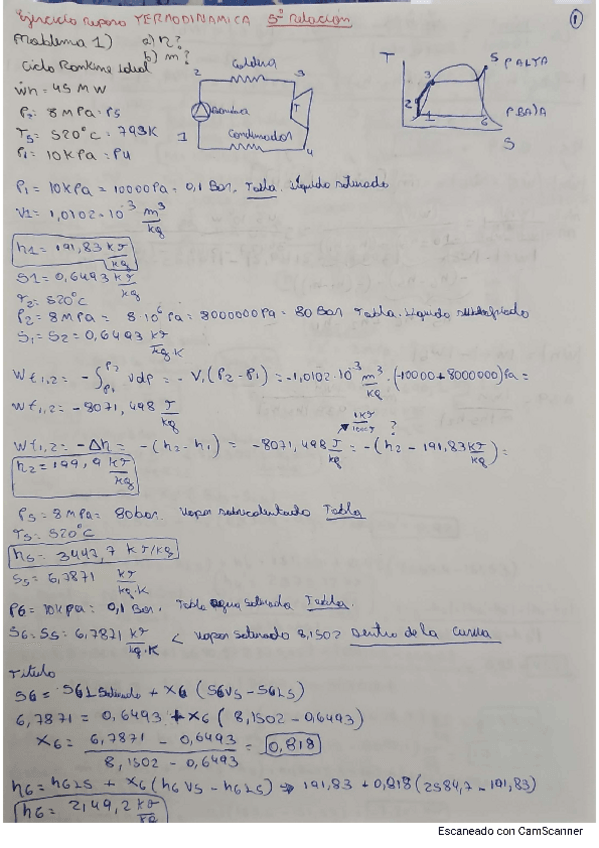 Ejercicio repaso TERMODINAMICA 5º relación
1
Problema 1) a) η?
b) ṁ?
Ciclo Rankine ideal
Ẇn = 45 MW
P2 = 8 MPa = P5
T5 = 520°C = 793K
P1 = 10 KPa = P4
Caldera
2 3
Bomba T
1 Condensador 4
T 5 P ALTA
3
2
1 6 P BAJA
S
P1 = 10 KPa = 10000 Pa = 0,1 Bar. Tabla. Líquido saturado
V1 = 1,0102·10⁻³ m³/kg
h1 = 191,83 KJ/kg
S1 = 0,6493 KJ/kg
T2 = 520°C
P2 = 8 MPa = 8·10⁶ Pa = 8000000 Pa = 80 Bar Tabla. Líquido subenfriado
S1 = S2 = 0,6493 KJ/kg·K
Wt1,2 = -∫P1 P2 vdp = -V1(P2-P1) = -1,0102·10⁻³ m³/kg · (-10000 + 8000000) Pa =
Wt1,2 = -8071,498 J/kg
Wt1,2 = -Δh = -(h2-h1) = -8071,498 J/kg = -(h2 - 191,83 KJ/kg) =
1KJ/1000J ?
h2 = 199,9 KJ/kg
P5 = 8 MPa = 80 bar. Vapor sobrecalentado Tabla
T5 = 520°C
h5 = 3447,7 KJ/kg
S5 = 6,7871 KJ/kg·K
P6 = 10 KPa = 0,1 Bar. Tabla agua saturada Tabla.
S6 = S5 = 6,7871 KJ/kg·K < Vapor saturado 8,1502 Dentro de la curva
Título
S6 = S6L Saturado + X6 (S6VS - S6LS)
6,7871 = 0,6493 + X6 (8,1502 - 0,6493)
X6 = 6,7871 - 0,6493 / 8,1502 - 0,6493 = 0,818
h6 = h6LS + X6 (h6VS - h6LS) → 191,83 + 0,818 (2584,7 - 191,83)
h6 = 2149,2 KJ/kg
Escaneado con CamScanner